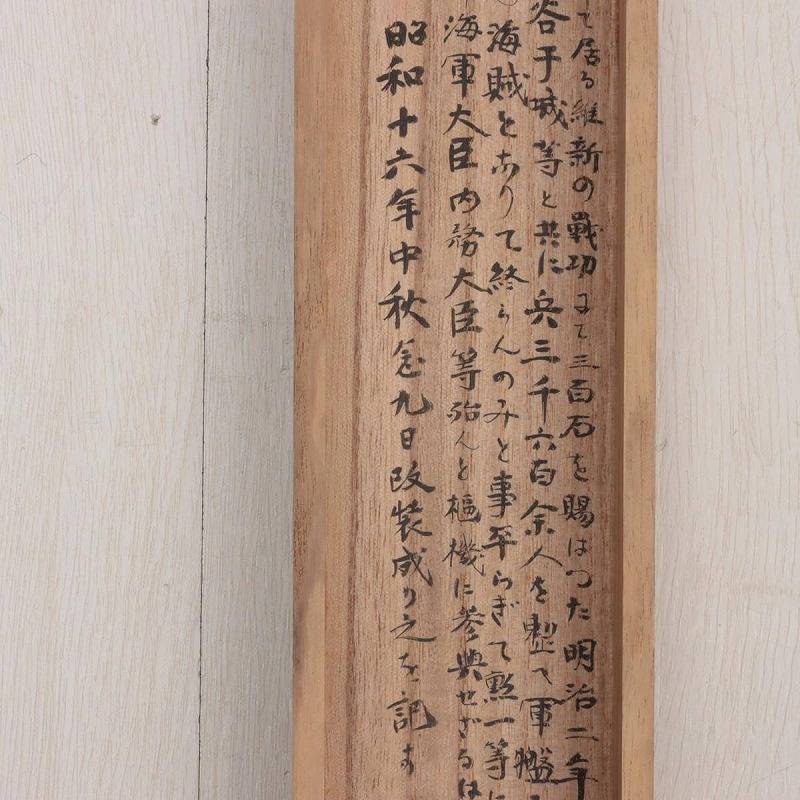 て居る維新の戰功にて三百石を賜はつた明治二年
谷干城等と共に兵三千六百余人を整て軍艦
海賊となりて終らんのみと事平らぎて勲一等に
海軍大臣内務大臣等殆んど樞機に參與せざるは
昭和十六年中秋念九日改装成り之を記す